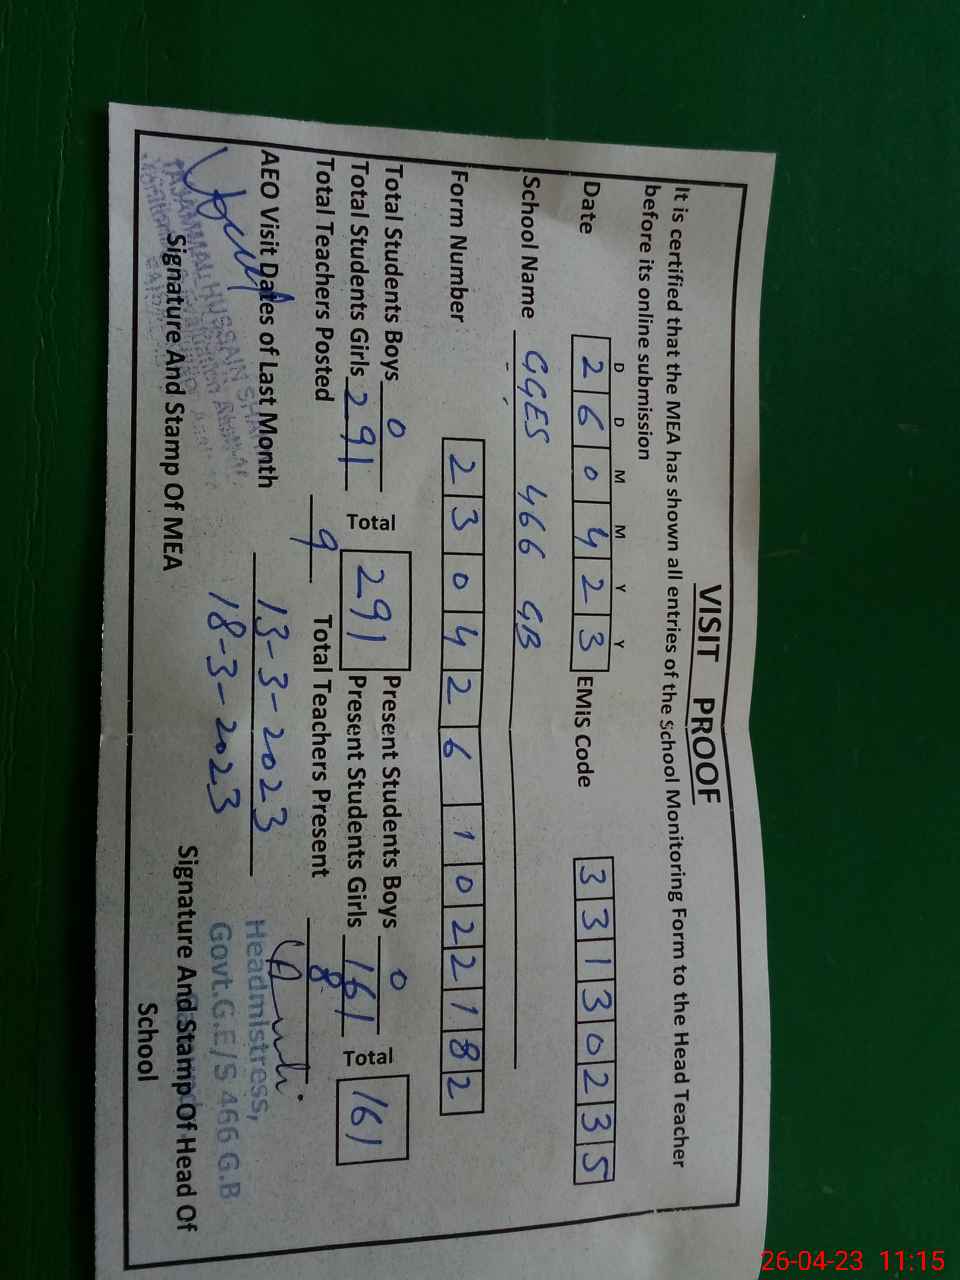 VISIT PROOF
It is certified that the MEA has shown all entries of the School Monitoring Form to the Head Teacher
before its online submission
D D M M Y Y
Date 260423 EMiS Code 33130235
School Name GGES 466 GB
Form Number 2304261022182
Total Students Boys 0 Present Students Boys 0
Total Students Girls 291 Total 291 Present Students Girls 161 Total 161
Total Teachers Posted 9 Total Teachers Present 8
AEO Visit Dates of Last Month 13-3-2023
18-3-2023
TAJAMMAL HUSSAIN SHAH
Headmistress,
Govt.G.E/S 466 G.B
Signature And Stamp Of MEA Signature And Stamp Of Head Of
School
26-04-23 11:15